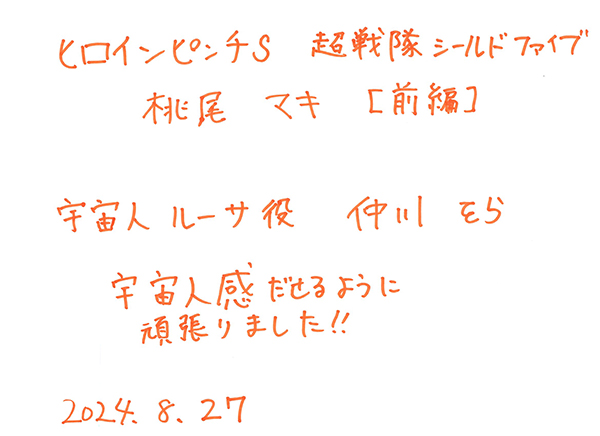 ヒロインピンチS 超戦隊シールドファイブ
桃尾 マキ [前編]
宇宙人 ルーサ役 仲川 そら
宇宙人感だせるように
頑張りました!!
2024.8.27